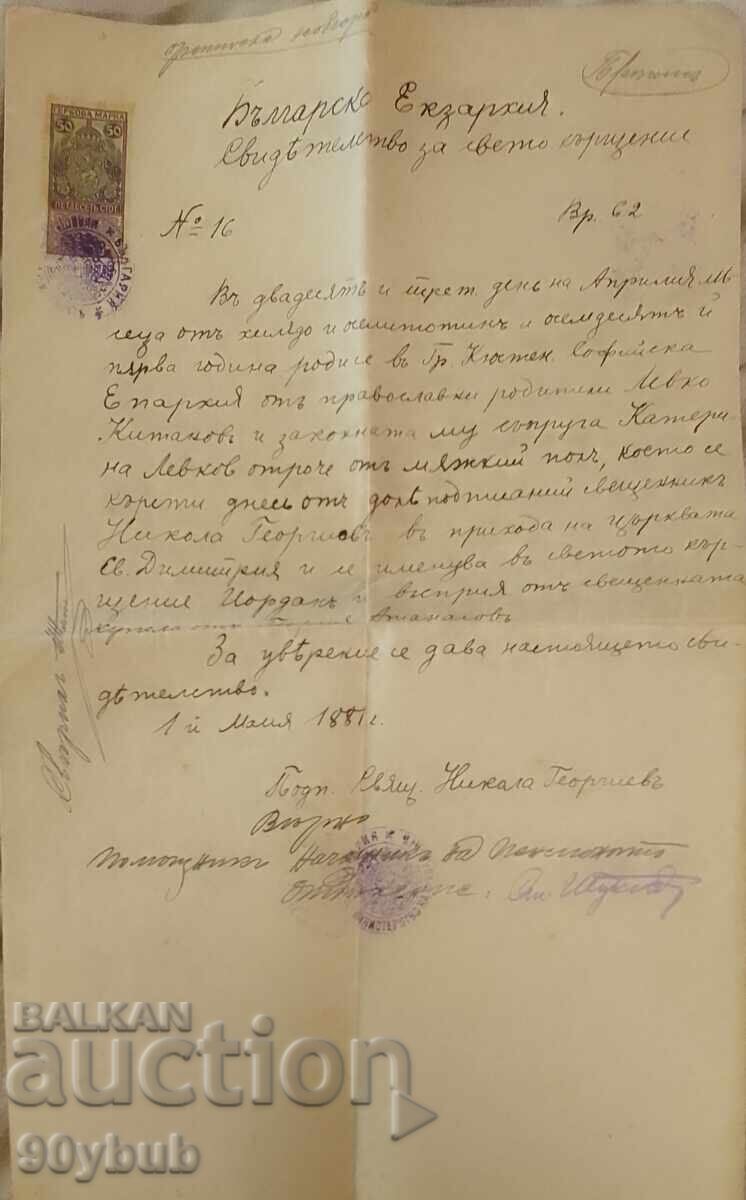 Препис
ГЕРБОВА МАРКА
50 50
ПЕТДЕСЕТЬ СТОТ.
БЪЛГАРИЯ
Българска Екзархия.
Свидѣтелство за свето кръщение
№ 16
Вр. 62
Въ двадесять и трет. день на Априлия мѣ
сеца отъ хилядо и осемстотинъ и осемдесятъ й
първа година родисе въ Гр. Кюстен. Софийска
Епархия отъ православни родители Левко
Китановъ и законната му съпруга Катери-
на Левков отроче отъ мѫжкий полъ, което се
кърсти днесъ отъ долѣподписаний священникъ
Никола Георгиевъ въ прихода на църквата
Св. Димитрия и се именува въ светото кър-
щение Иорданъ и възприя отъ священната
купель отъ Атанасовъ
За увѣрение се дава настоящето сви-
дѣтелство.
1 й Маия 1881 г.
Подп. Свящ. Никола Георгиевъ
Вѣрно
Помощникъ Началникъ на Пенсионното
Отдѣление:
BALKAN
auction
90ybub